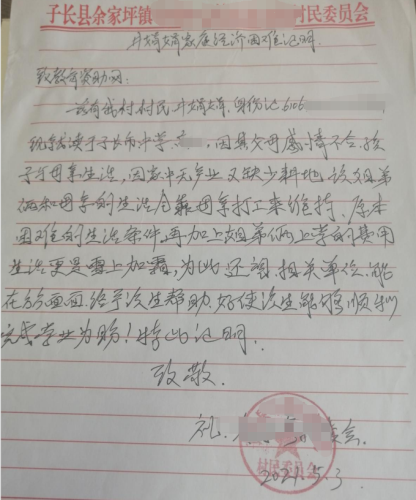 子长县余家坪镇 村民委员会
家庭经济困难证明
致教育资助网
兹有我村村民 身份证6106
现就读于子长市中学, 因其父母感情不合, 孩
子与母亲生活, 因家中无产业又缺少耕地, 该姐弟
俩和母亲的生活全靠母亲打工来维持, 原本
困难的生活条件, 再加上姐弟俩上学的费用
生活更是雪上加霜, 为此还望相关单位, 能
在各方面面给予该生帮助, 好使该生能够顺利
完成学业为盼! 特此证明.
致敬
礼
村民委员会
2021.5.3